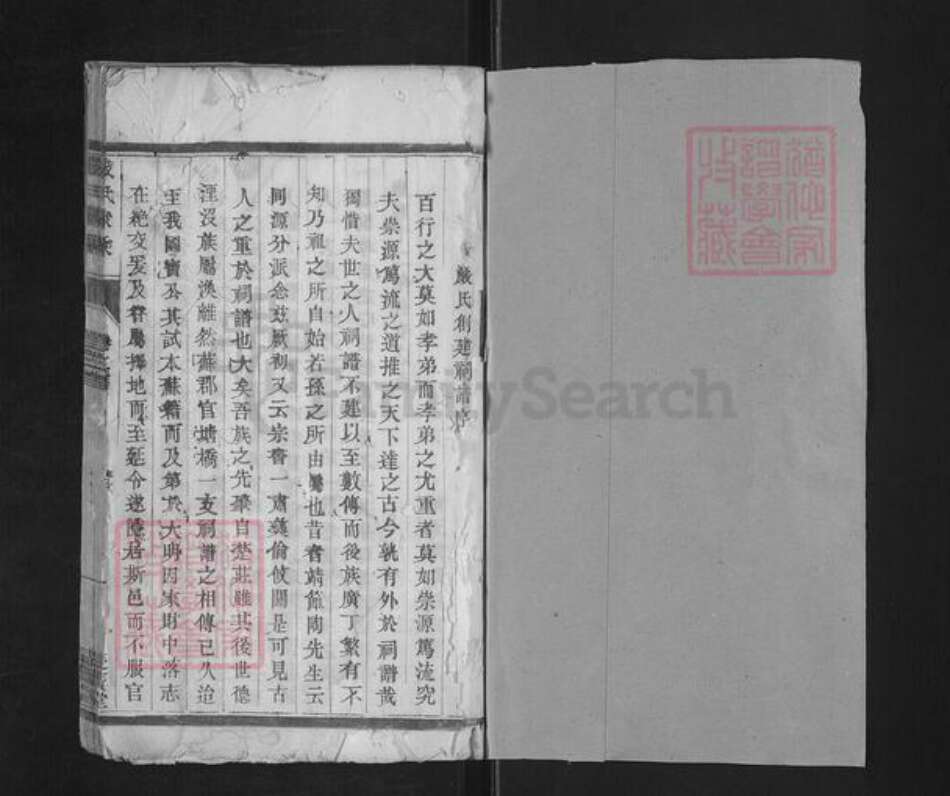 嚴氏創建祠譜序
百行之大莫如孝弟而孝弟之尤重者莫如崇源篤流究
夫崇源篤流之道推之天下達之古今孰有外於祠譜哉
獨惜夫世之人祠譜不建以至數傳而後族廣丁繁有不
知乃祖之所自始若孫之所由屬也昔者靖節陶先生云
同源分派念茲厥初又云宗會一肅彝倫攸關是可見古
人之重於祠譜也大矣吾族之先肇自楚莊雖其後世德
湮沒族屬渙離然蘇郡官塘橋一支祠譜之相傳已久迨
至我國寶公其試本蘇籍而及第於大明因家財中落志
在絕交爰及眷屬擇地而至延令遂隱居斯邑而不服官
嚴氏家乘
FamilySearch
猶他家譜學會收藏